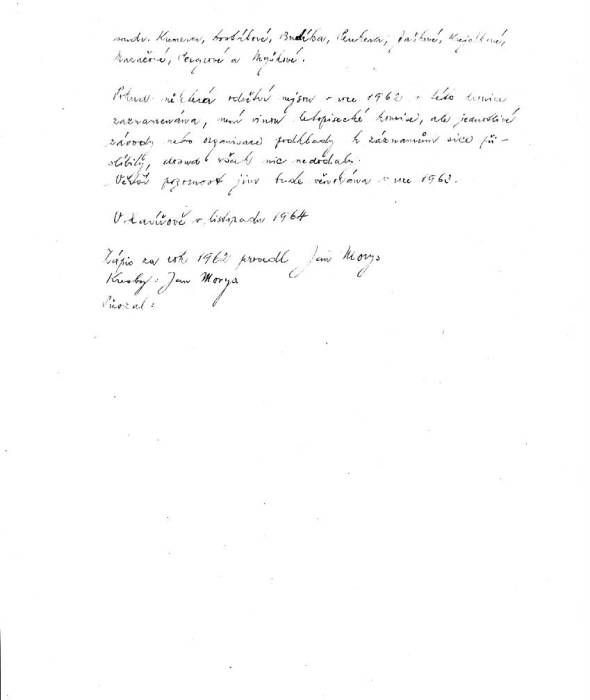 soudr. Kumerova, Dostálové, Budíka, Peukera, Jašková, Krejčíková,
a Myškové.
Pokud některá odvětví nejsou v roce 1962 v této kronice
zaznamenána, není vinou letopisecké komise, ale jednotlivé
závody nebo organisace podklady k záznamům sice při-
slíbily, dosud však nic nedodaly.
Větší pozornost jim bude věnována v roce 1963.
V Havířově v listopadu 1964
Zápis za rok 1962 provedl Jan Morys
Kresby: Jan Morys
Přepsal: